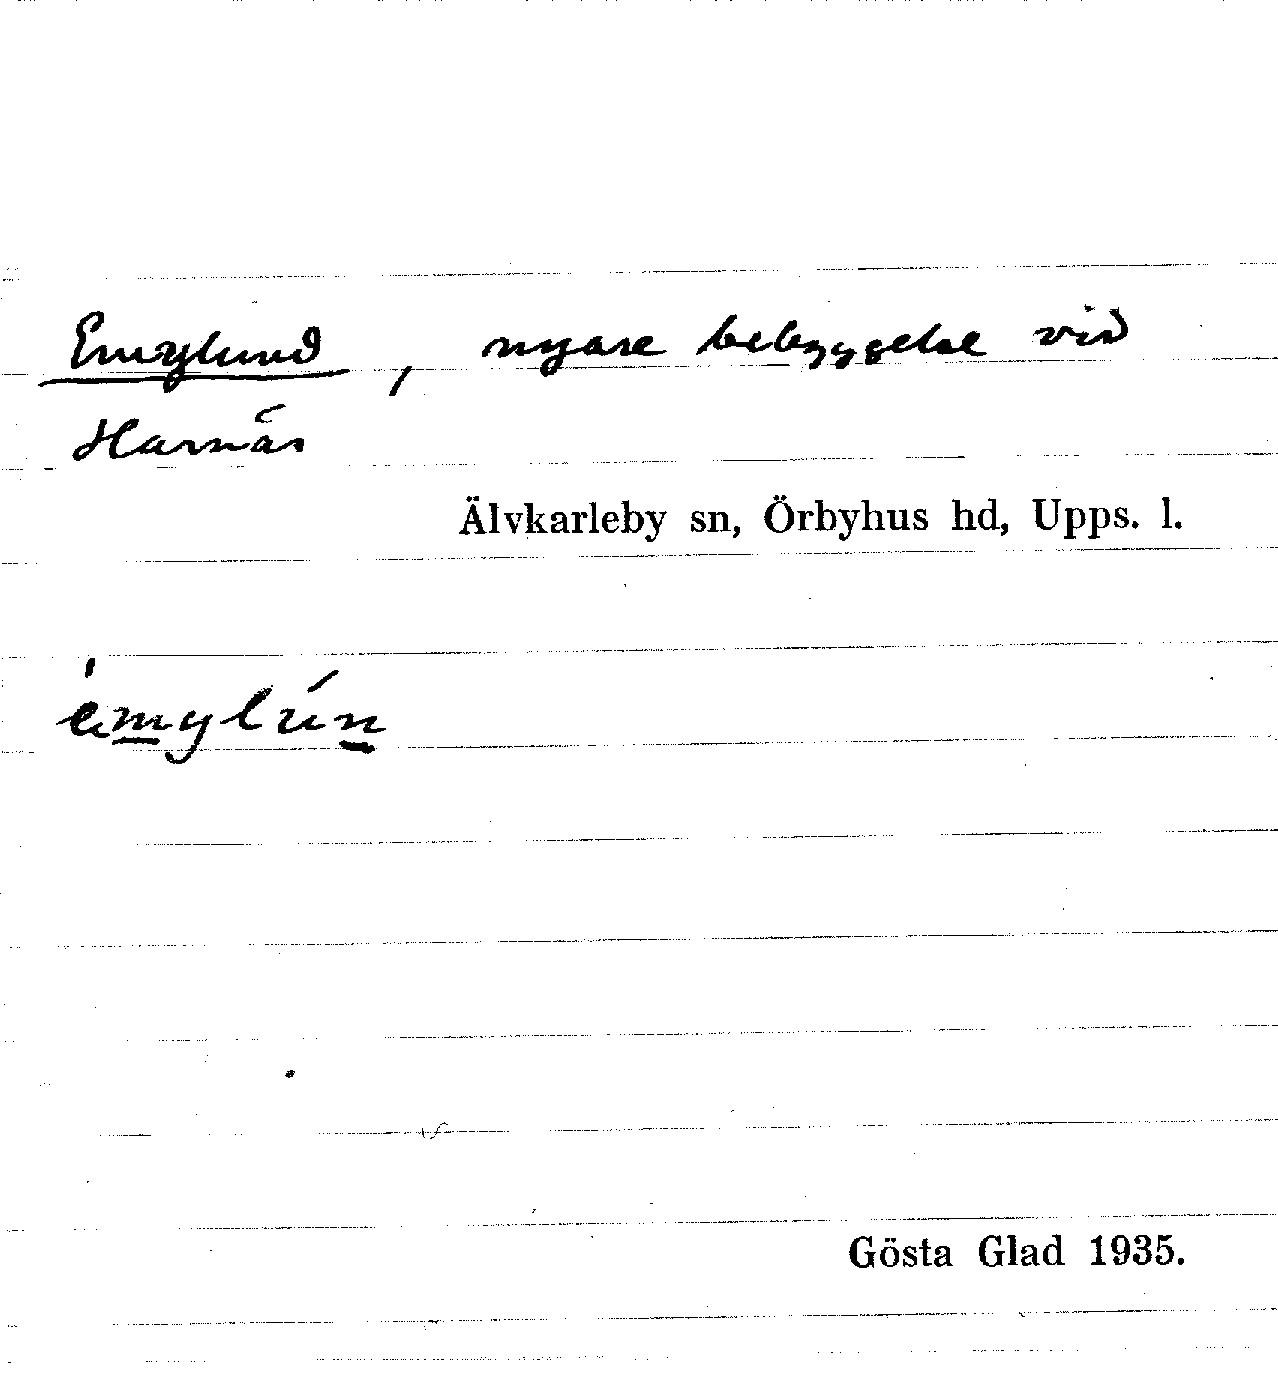 Emylund, nyare bebyggelse vid
Harnäs
Älvkarleby sn, Örbyhus hd, Upps. l.
èmylún
Gösta Glad 1935.